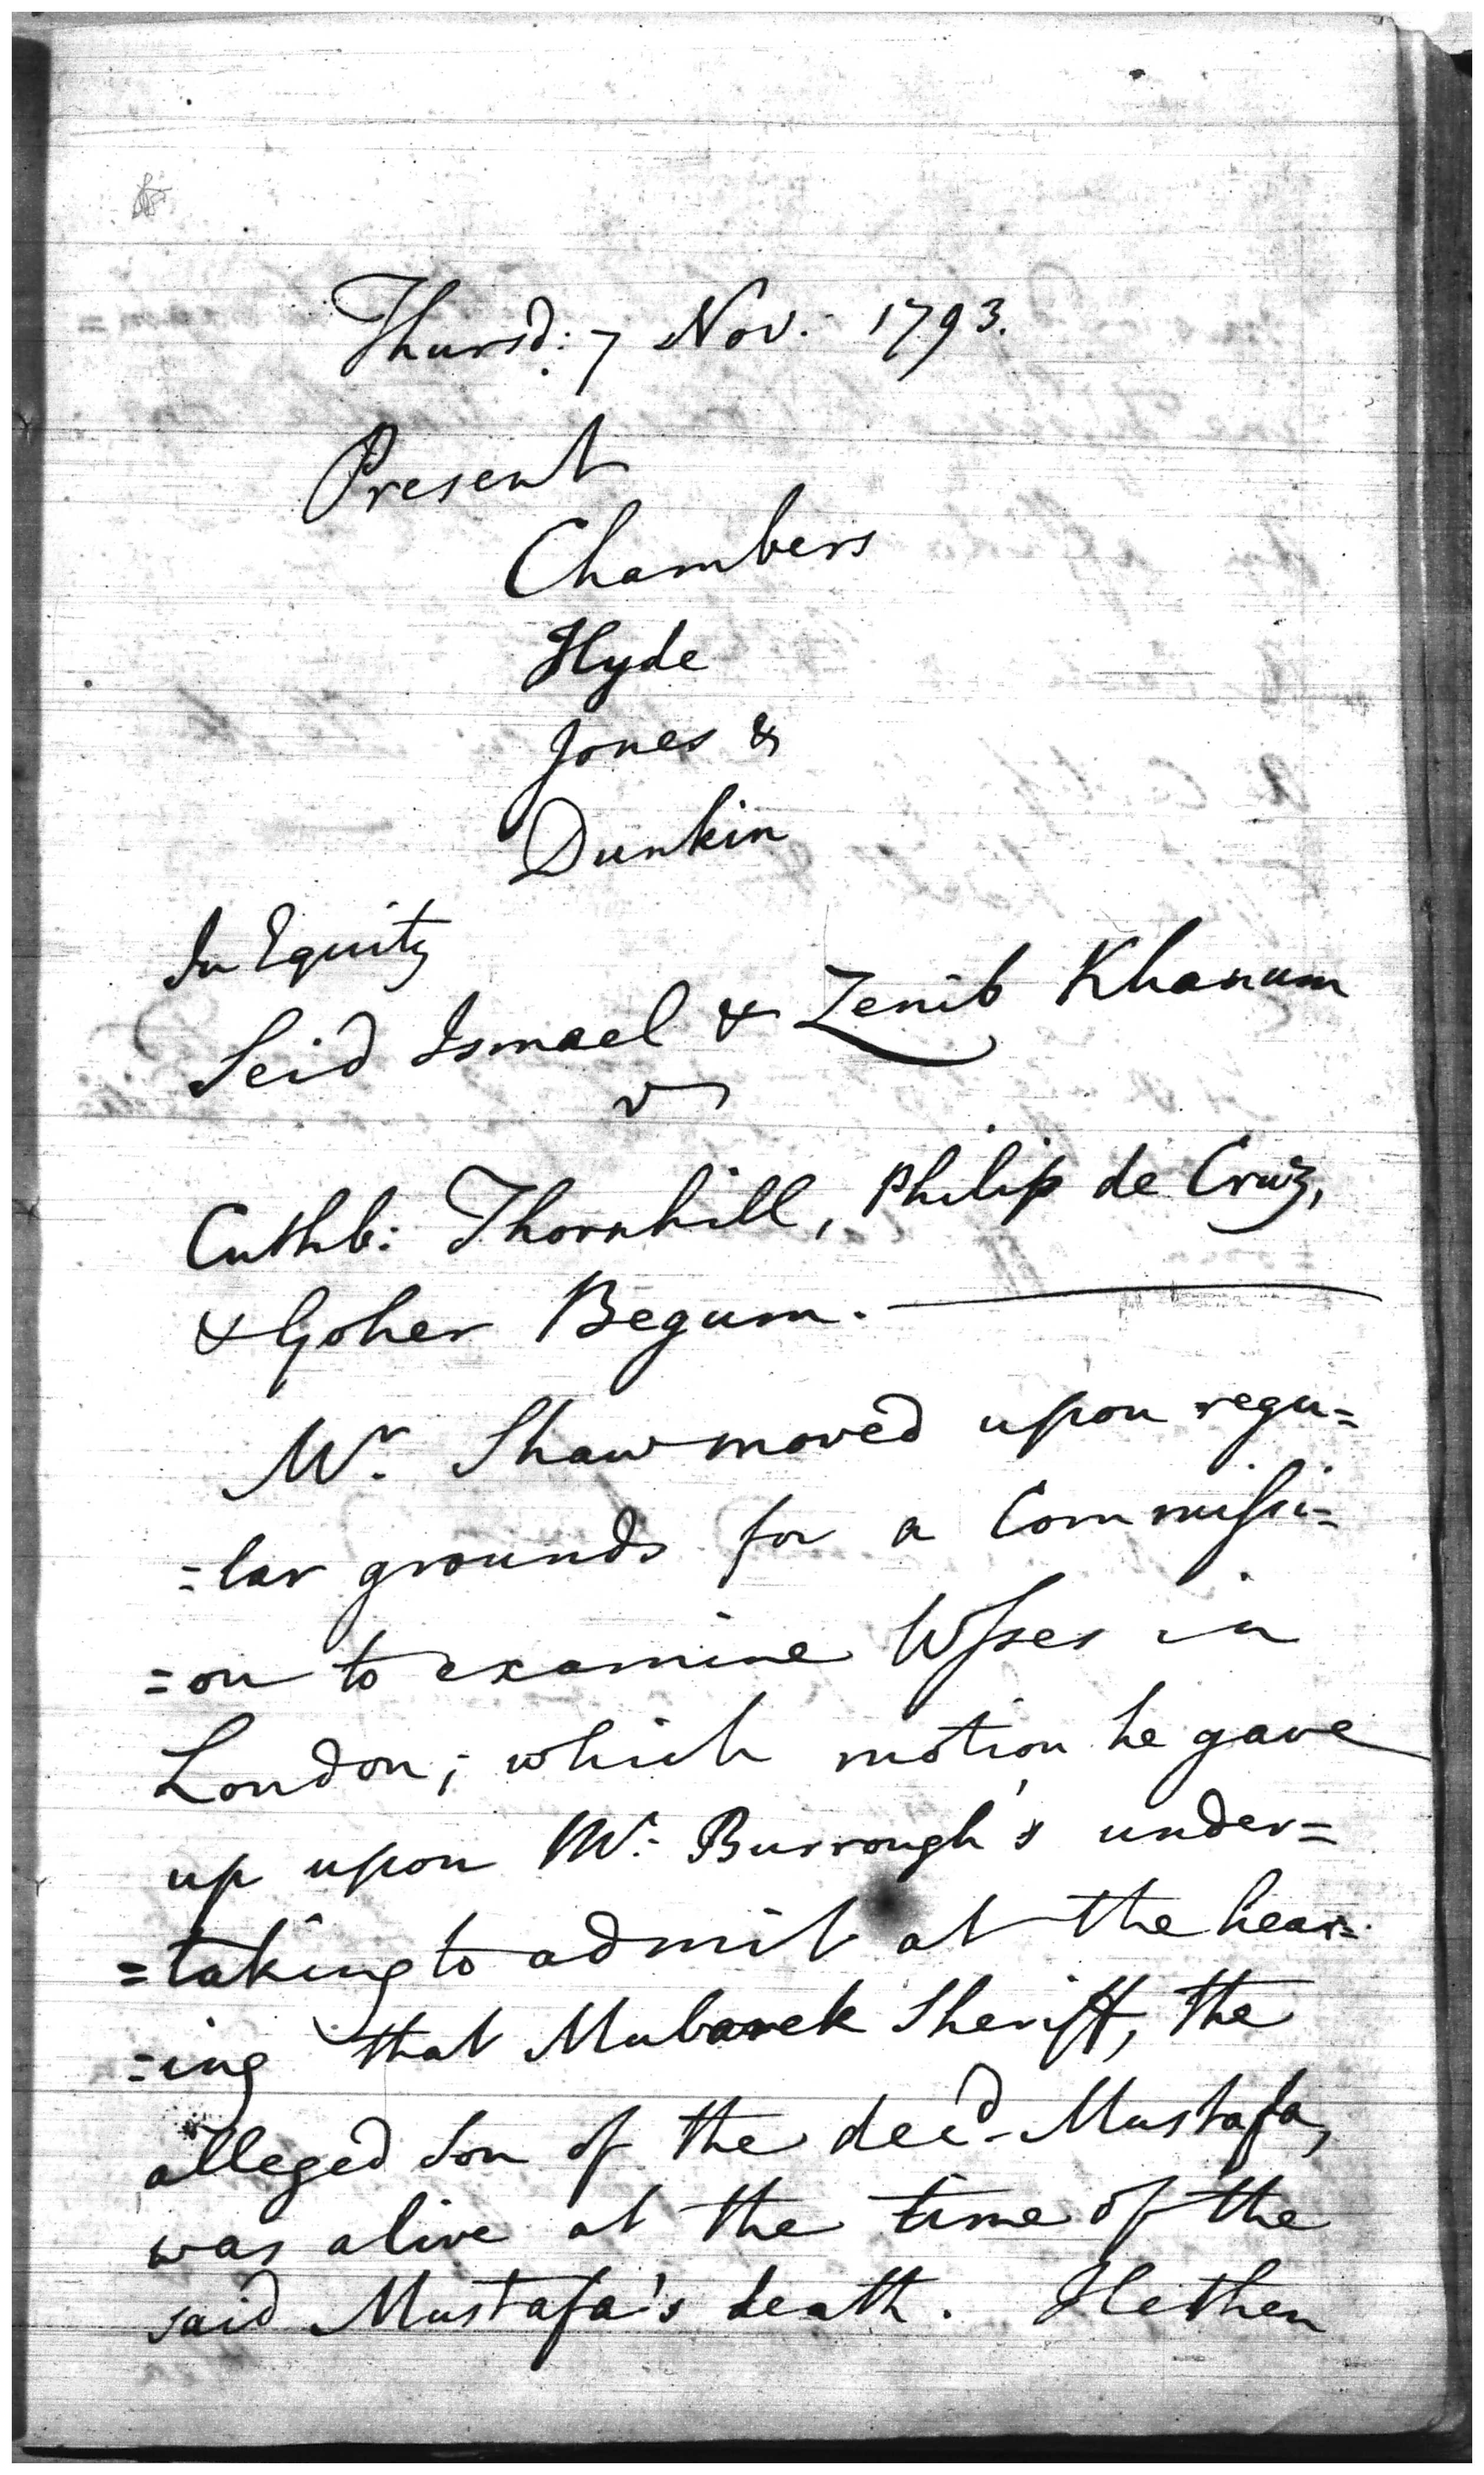 Thursd: 7 Nov. 1793.
Present
Chambers
Hyde
Jones &
Dunkin
In Equity
Seid Ismael & Zenib Khanum
v
Cuthb: Thornhill, Philip de Cruz,
& Goher Begum.
Mr. Shaw moved upon regu=
=lar grounds for a Commissi=
=on to examine Wsses in
London; which motion he gave
up upon Mr. Burrough's under=
=taking to admit at the hear=
=ing that Mubarek Sheriff, the
alleged Son of the decd. Mustafa,
was alive at the time of the
said Mustafa's death. He then